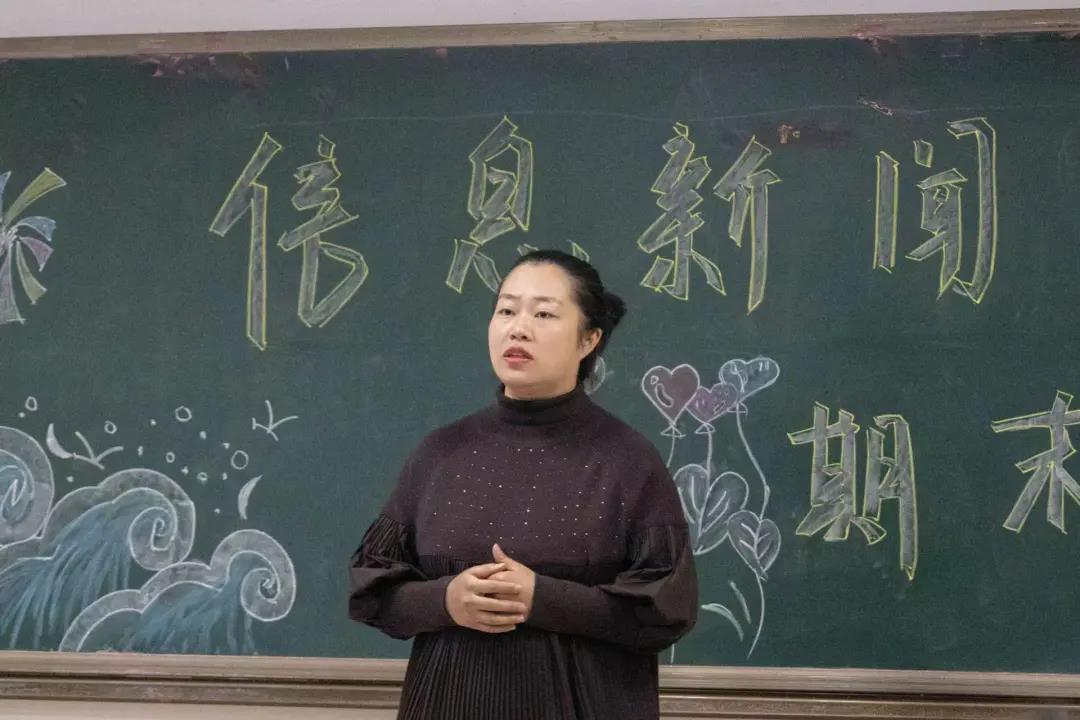 信息新闻
期末